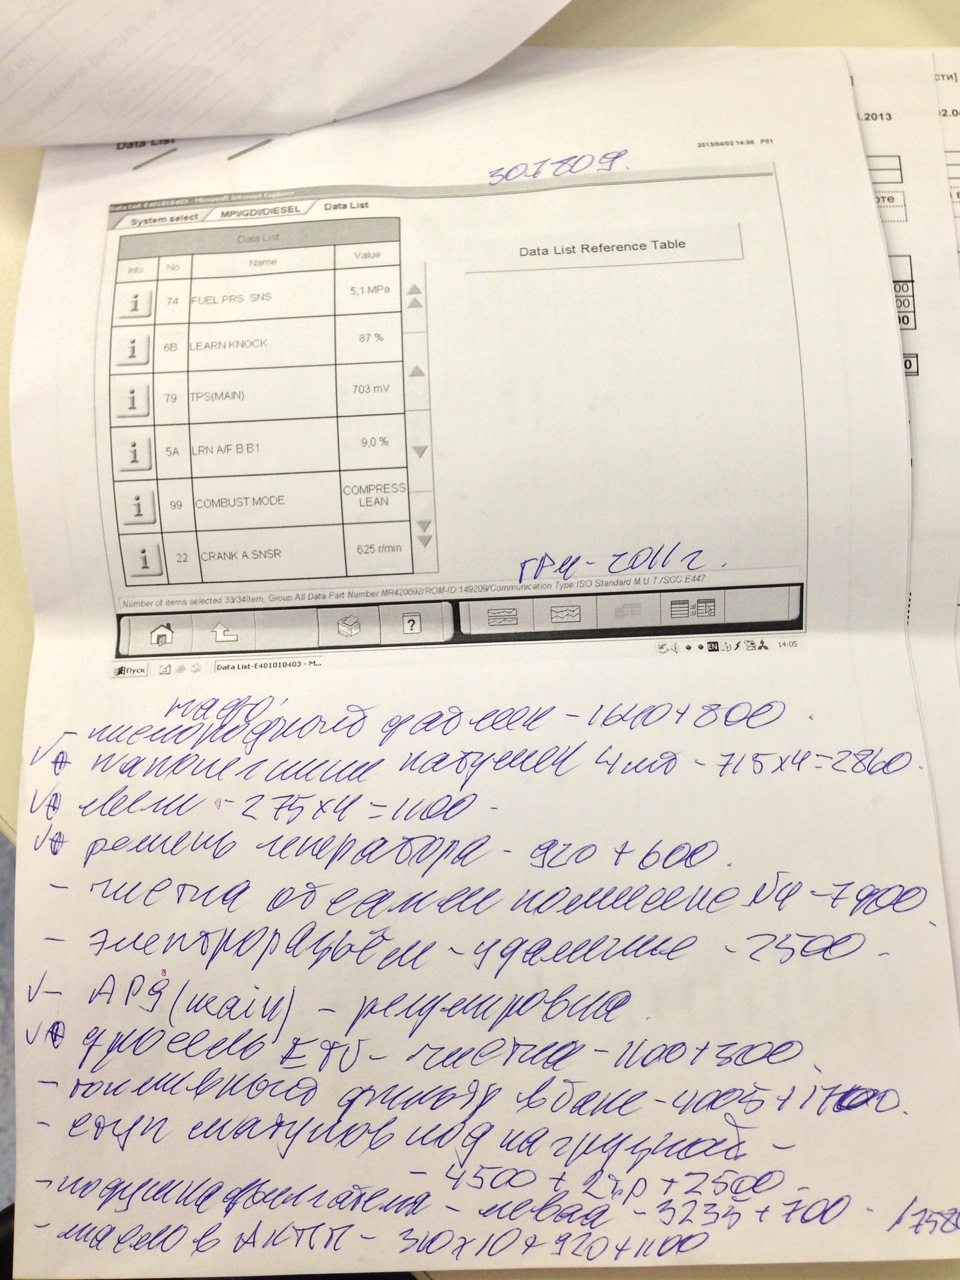 Data List
2013/04/02 14:06 P01
.2013
сти]
02.04
307809.
Data List-E401010403 - Microsoft Internet Explorer
System select / MPI/GDI/DIESEL / Data List
Data List
Data List Reference Table
Info No Name Value
i 74 FUEL PRS SNS 5,1 MPa
i 6B LEARN KNOCK 87 %
i 79 TPS(MAIN) 703 mV
i 5A LRN A/F B B1 9,0 %
i 99 COMBUST MODE COMPRESS
LEAN
i 22 CRANK A.SNSR 625 r/min
ГРМ - 2011 г.
Number of items selected 33/34Item, Group:All Data Part Number:MR420692/ROM-ID:149209/Communication Type:ISO Standard M.U.T./SGC E447
?
Пуск Data List-E401010403 - M... EN 14:05
надо:
- кислородного датчик - 1640+800.
√ наконечники катушек 4 шт - 715x4=2860.
√ свечи - 275x4=1100 -
√ ремень генератора - 920+600.
- чистка от сажи комплекс №4 - 7900
- электроразъём - удаление - 2500 -
√- АРД (main) - регулировка
√ дроссель ETV - чистка - 1100+300.
- топливный фильтр в баке - 4005+1700.
- стук шатунов под нагрузкой -
- 4500 + 2т.р + 2500 -
- подушка двигателя - левая - 3235+700 -
- масло в АКПП - 310x10+920+1100